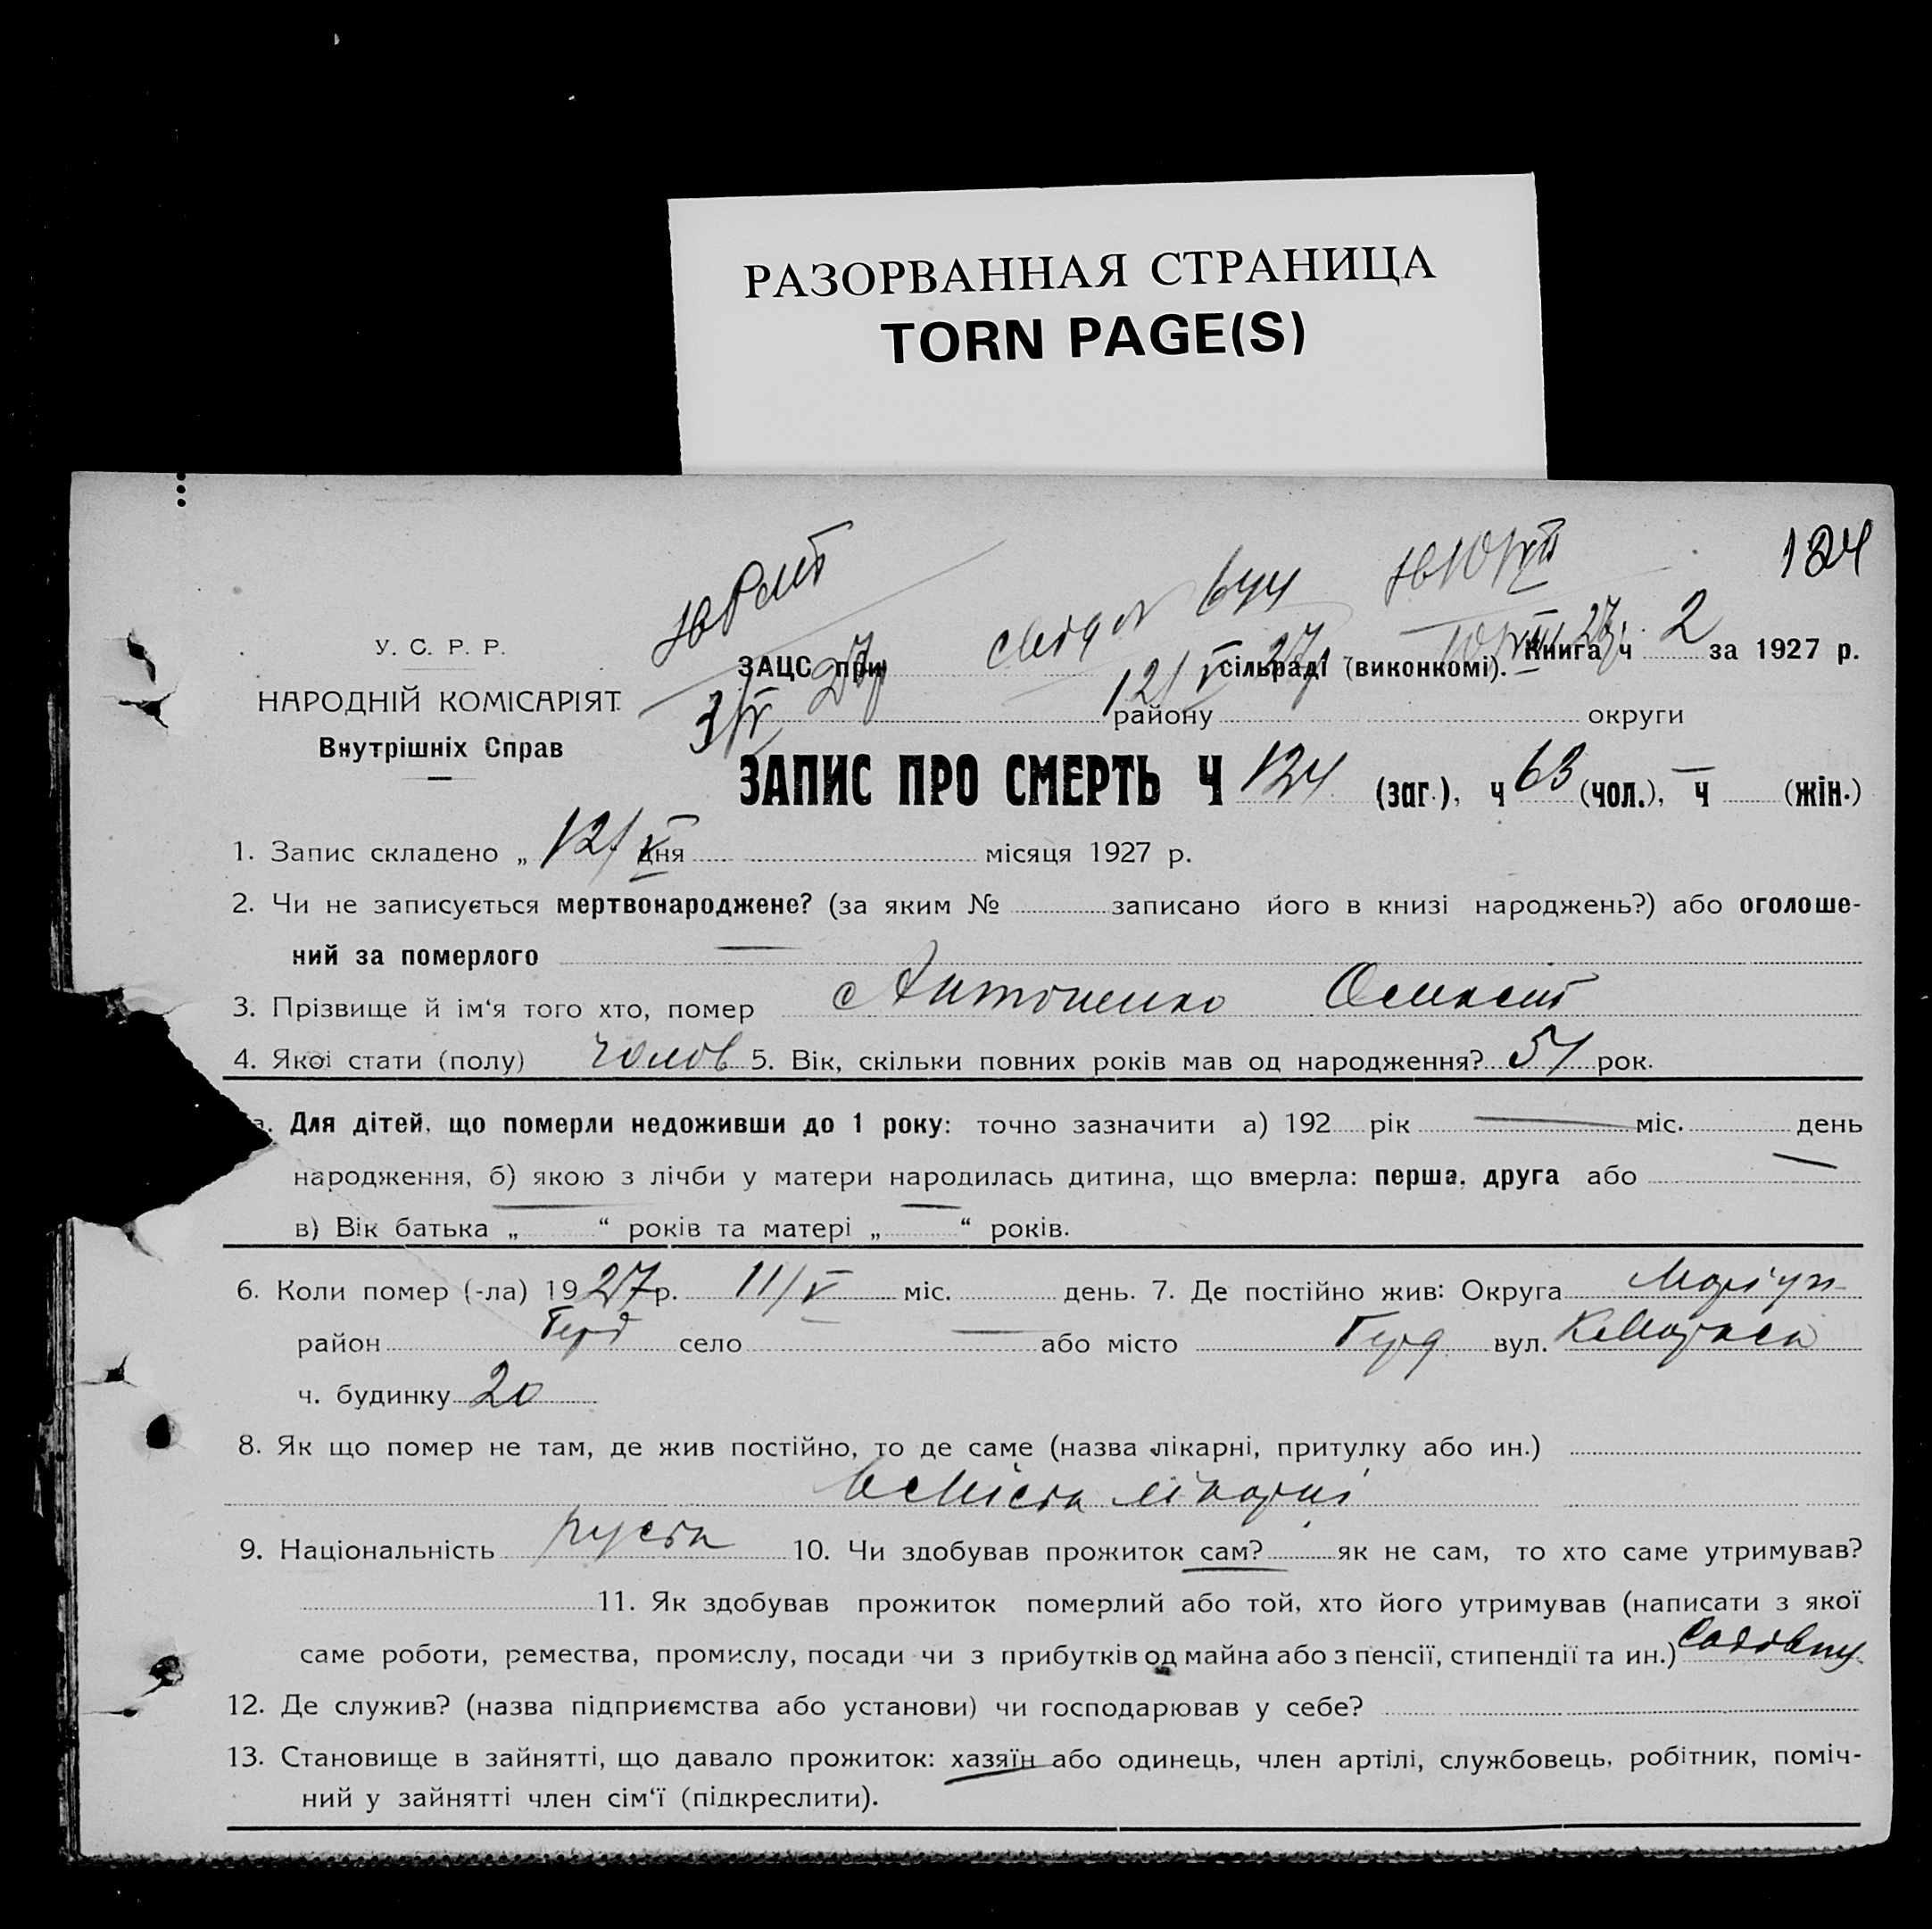 РАЗОРВАННАЯ СТРАНИЦА
TORN PAGE(S)
124
У. С. Р. Р.
НАРОДНІЙ КОМІСАРІЯТ
Внутрішніх Справ
ЗАЦС при сільраді (виконкомі). Книга ч 2 за 1927 р.
3/V 27р 12/V 27р
району округи
ЗАПИС ПРО СМЕРТЬ Ч 124 (заг.), ч 63 (чол.), ч — (жін.)
1. Запис складено „ 12/V дня місяця 1927 р.
2. Чи не записується мертвонароджене? (за яким № записано його в книзі народжень?) або оголоше-
ний за померлого —
3. Прізвище й ім‘я того хто, помер Антоненко
4. Якої стати (полу) чолов 5. Вік, скільки повних років мав од народження? 51 рок.
а. Для дітей, що померли недоживши до 1 року: точно зазначити а) 192 рік — міс. день
народження, б) якою з лічби у матери народилась дитина, що вмерла: перша, друга або —
в) Вік батька „ — “ років та матері „ — “ років.
6. Коли помер (-ла) 1927 р. 11/V міс. день. 7. Де постійно жив: Округа Маріуп
район село — або місто вул.
ч. будинку 20
8. Як що помер не там, де жив постійно, то де саме (назва лікарні, притулку або ин.)
лікарні
9. Національність руськ 10. Чи здобував прожиток сам? як не сам, то хто саме утримував?
11. Як здобував прожиток померлий або той, хто його утримував (написати з якої
саме роботи, ремества, промислу, посади чи з прибутків од майна або з пенсії, стипендії та ин.)
12. Де служив? (назва підприємства або установи) чи господарював у себе?
13. Становище в зайнятті, що давало прожиток: хазяїн або одинець, член артілі, службовець, робітник, поміч-
ний у зайнятті член сім‘ї (підкреслити).